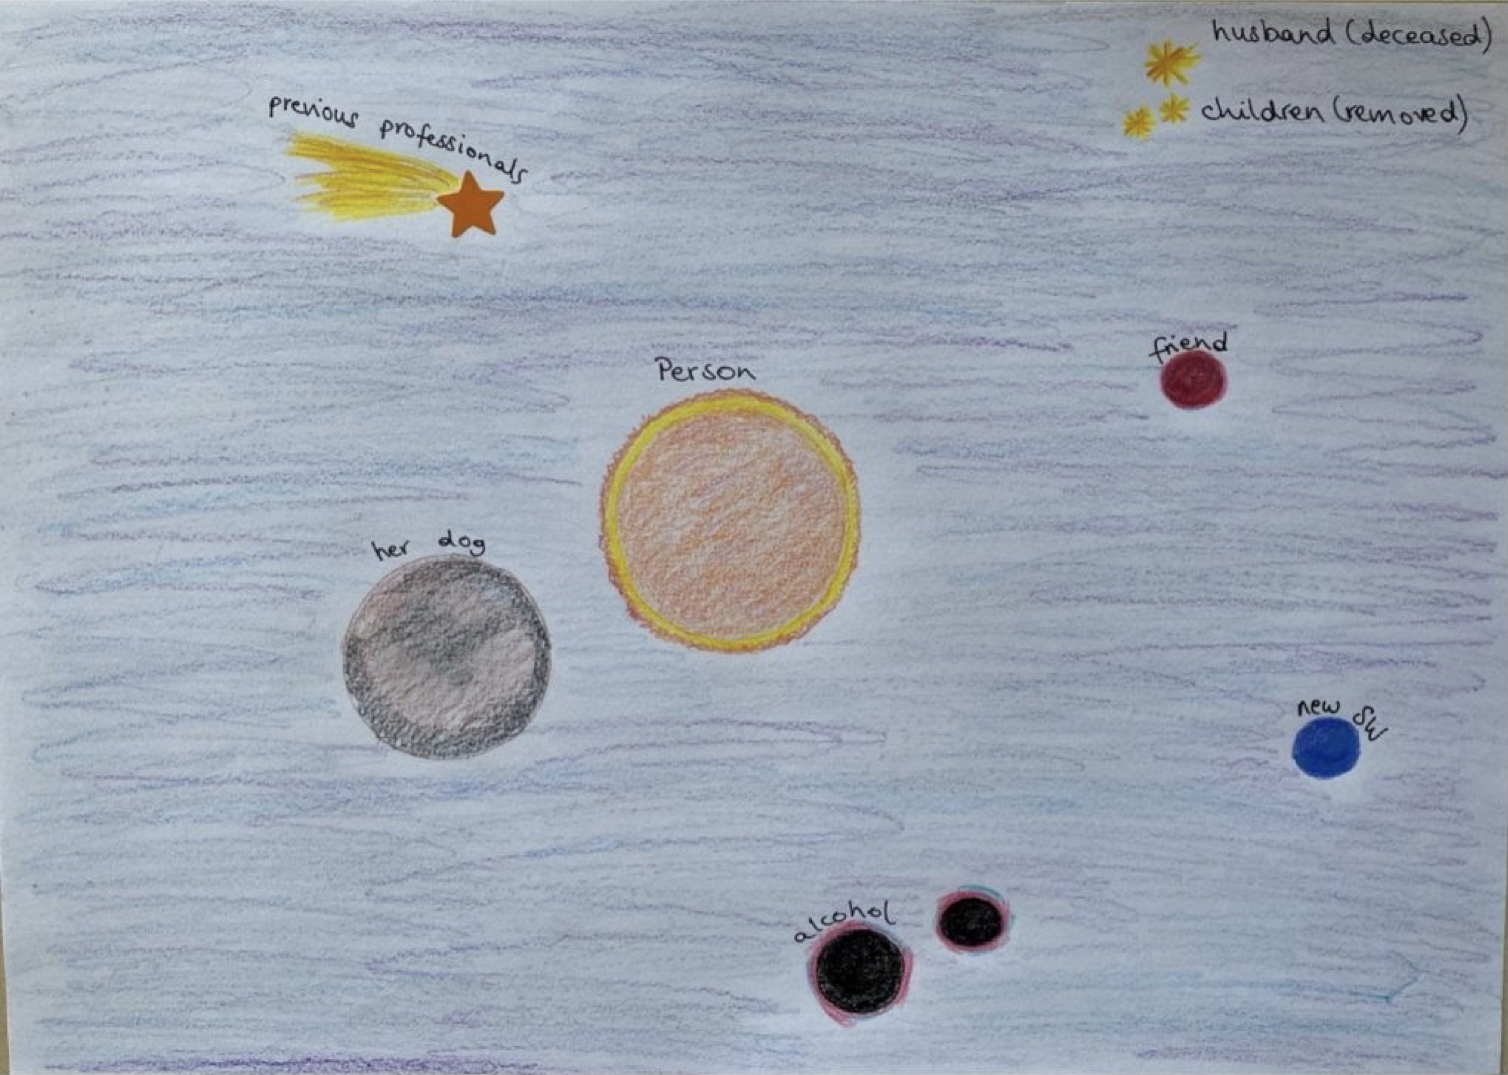 husband (deceased)
children (removed)
previous professionals
friend
Person
her dog
new SW
alcohol